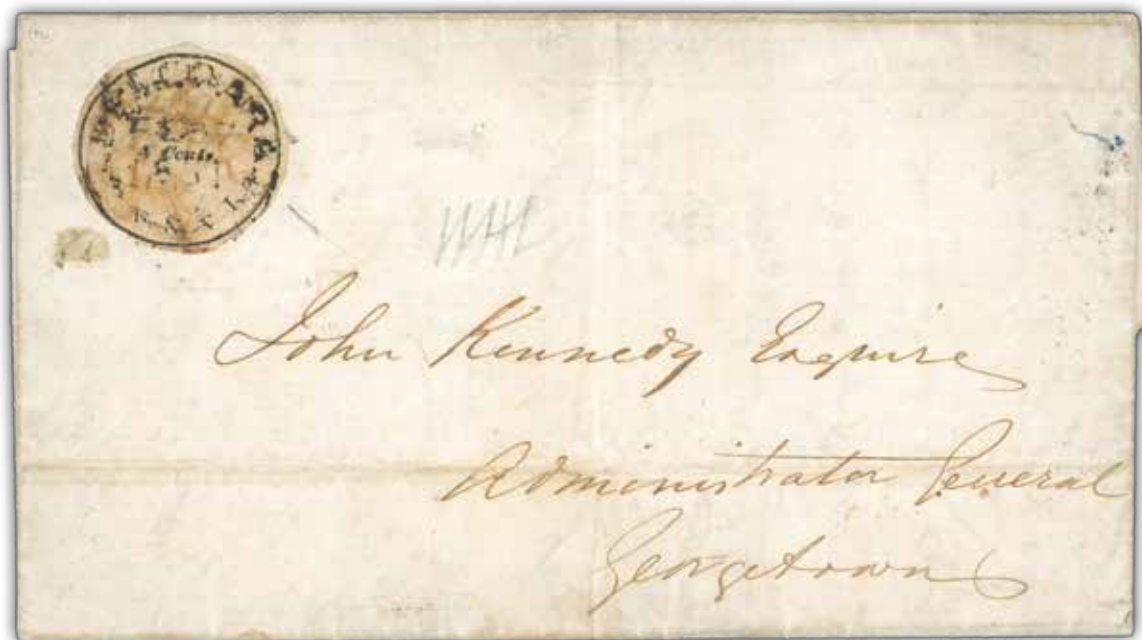 4 Cents.
John Kennedy Esquire
Administrator General
Georgetown